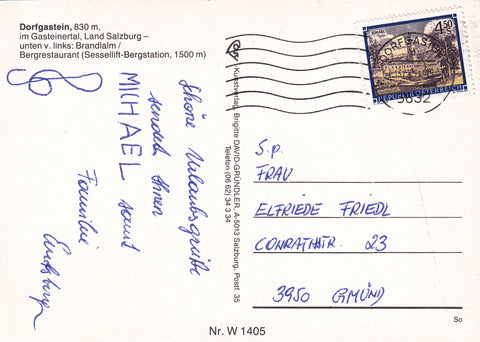 Dorfgastein, 830 m,
im Gasteinertal, Land Salzburg –
unten v. links: Brandlalm /
Bergrestaurant (Sessellift-Bergstation, 1500 m)
Schöne Urlaubsgrüße
sendet Ihnen
MICHAEL samt
Familie
Kunstverlag Brigitte DAVID-GRÜNDLER, A-5013 Salzburg, Postf. 35
Telefon (06 62) 34 3 34
4.50
REPUBLIK ÖSTERREICH
DORFGASTEIN
5632
S.p.
FRAU
ELFRIEDE FRIEDL
CONRATHSTR. 23
3950 GMÜND
Nr. W 1405
So